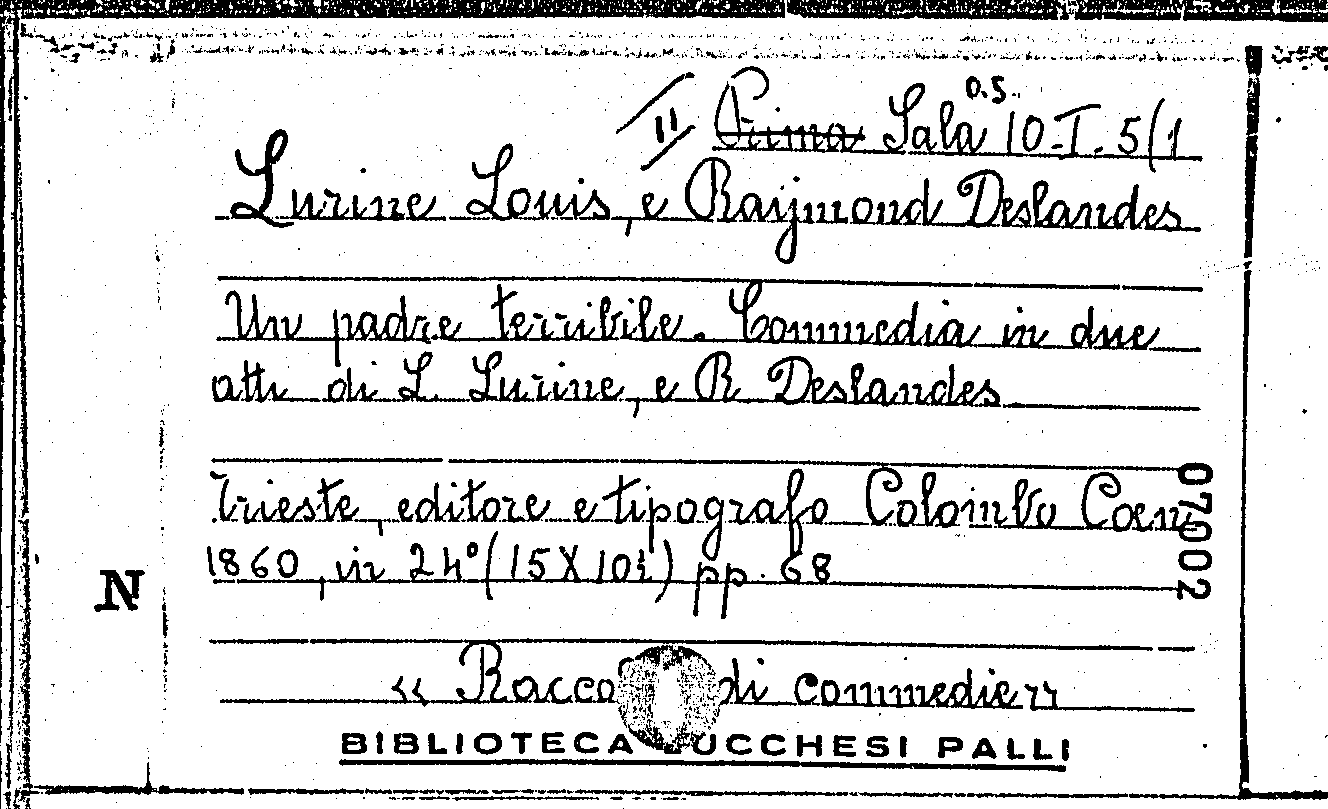 O.S.
II Prima Sala 10-I. 5(1
Lurine Louis, e Raijmond Deslandes
Un padre terribile. Commedia in due
atti di L. Lurine, e R. Deslandes
Trieste, editore e tipografo Colombo Coen
07002
1860, in 24° (15X10½) pp. 68
N
« Racco di commedie»
BIBLIOTECA UCCHESI PALLI